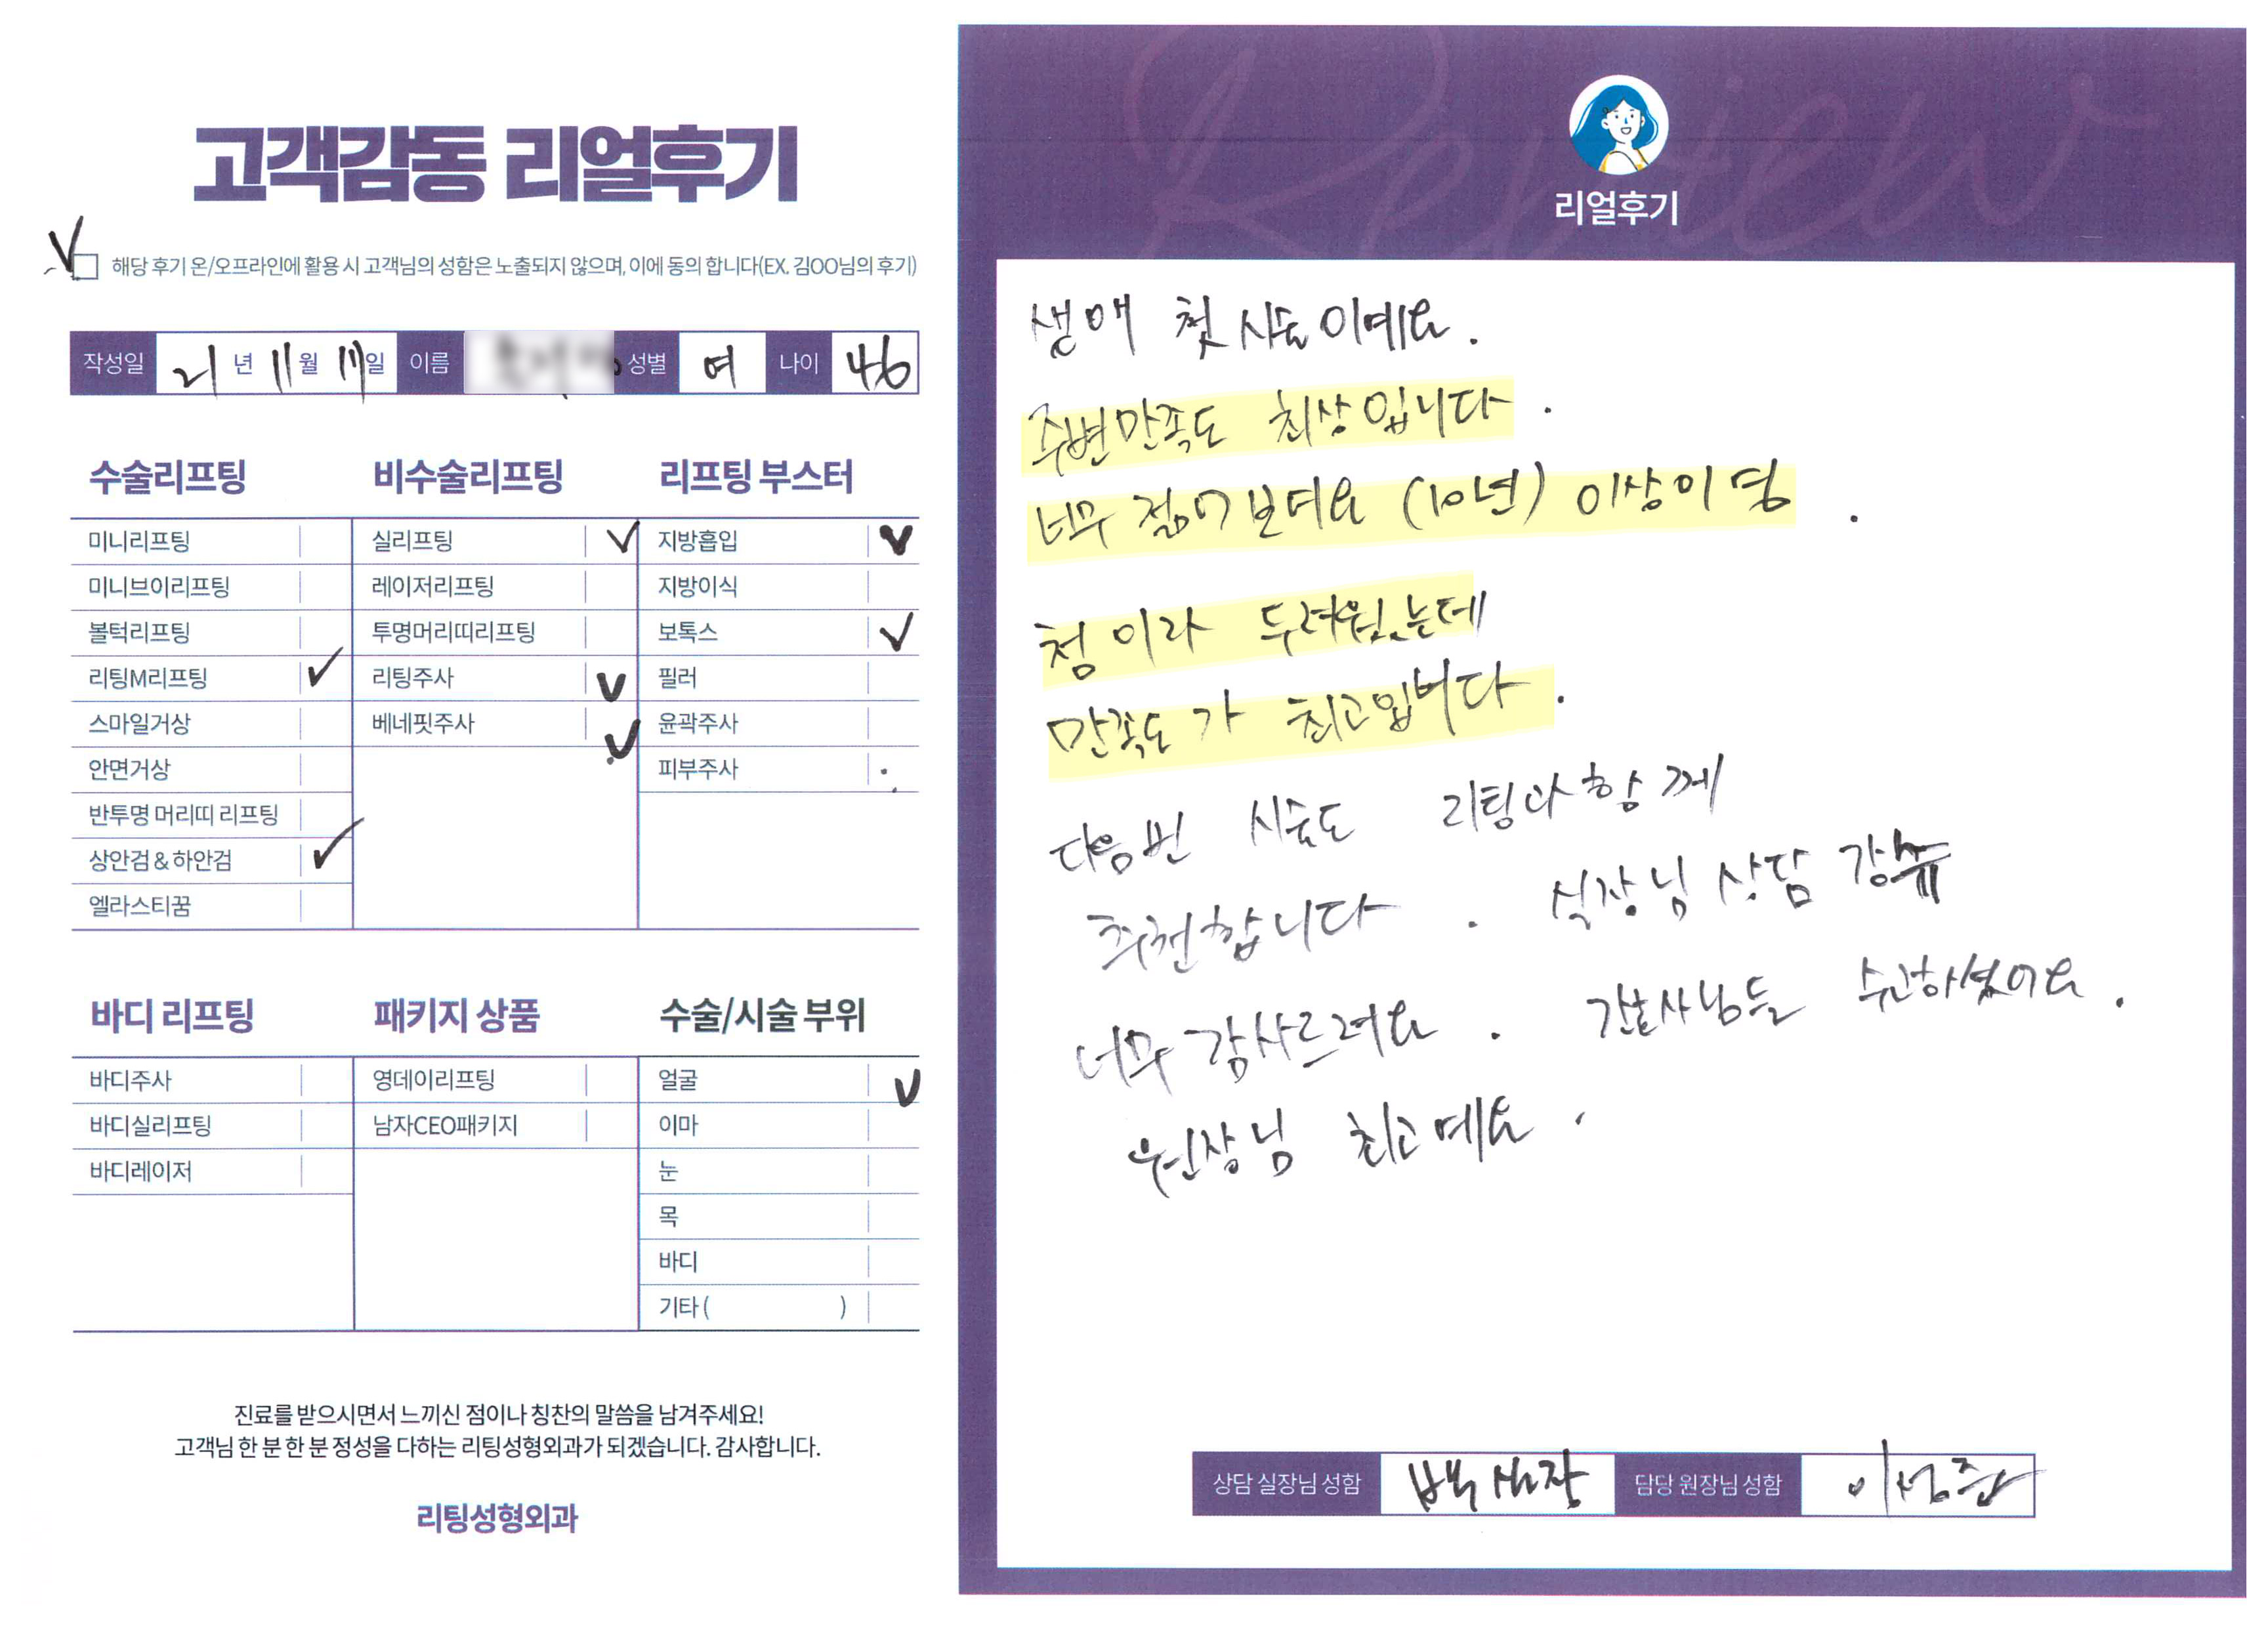 고객감동 리얼후기
해당 후기 온/오프라인에 활용 시 고객님의 성함은 노출되지 않으며, 이에 동의 합니다(EX. 김OO님의 후기)
작성일 21년 11월 17일 이름 성별 여 나이 46
수술리프팅
미니리프팅
미니브이리프팅
볼턱리프팅
리팅M리프팅
스마일거상
안면거상
반투명 머리띠 리프팅
상안검 & 하안검
엘라스티꿈
비수술리프팅
실리프팅
레이저리프팅
투명머리띠리프팅
리팅주사
베네핏주사
리프팅 부스터
지방흡입
지방이식
보톡스
필러
윤곽주사
피부주사
바디 리프팅
바디주사
바디실리프팅
바디레이저
패키지 상품
영데이리프팅
남자CEO패키지
수술/시술 부위
얼굴
이마
눈
목
바디
기타 ( )
진료를 받으시면서 느끼신 점이나 칭찬의 말씀을 남겨주세요!
고객님 한 분 한 분 정성을 다하는 리팅성형외과가 되겠습니다. 감사합니다.
리팅성형외과
Review
리얼후기
생애 첫 시술이예요.
주변만족도 최상입니다.
너무 젊어보여요 (10년) 이상이
첨이라 두려웠는데
만족도가 최고입니다.
다음번 시술도 리팅과 함께
추천합니다. 실장님 상담
너무 감사드려요. 간호사님들 수고하셨어요.
원장님 최고예요.
상담 실장님 성함 담당 원장님 성함